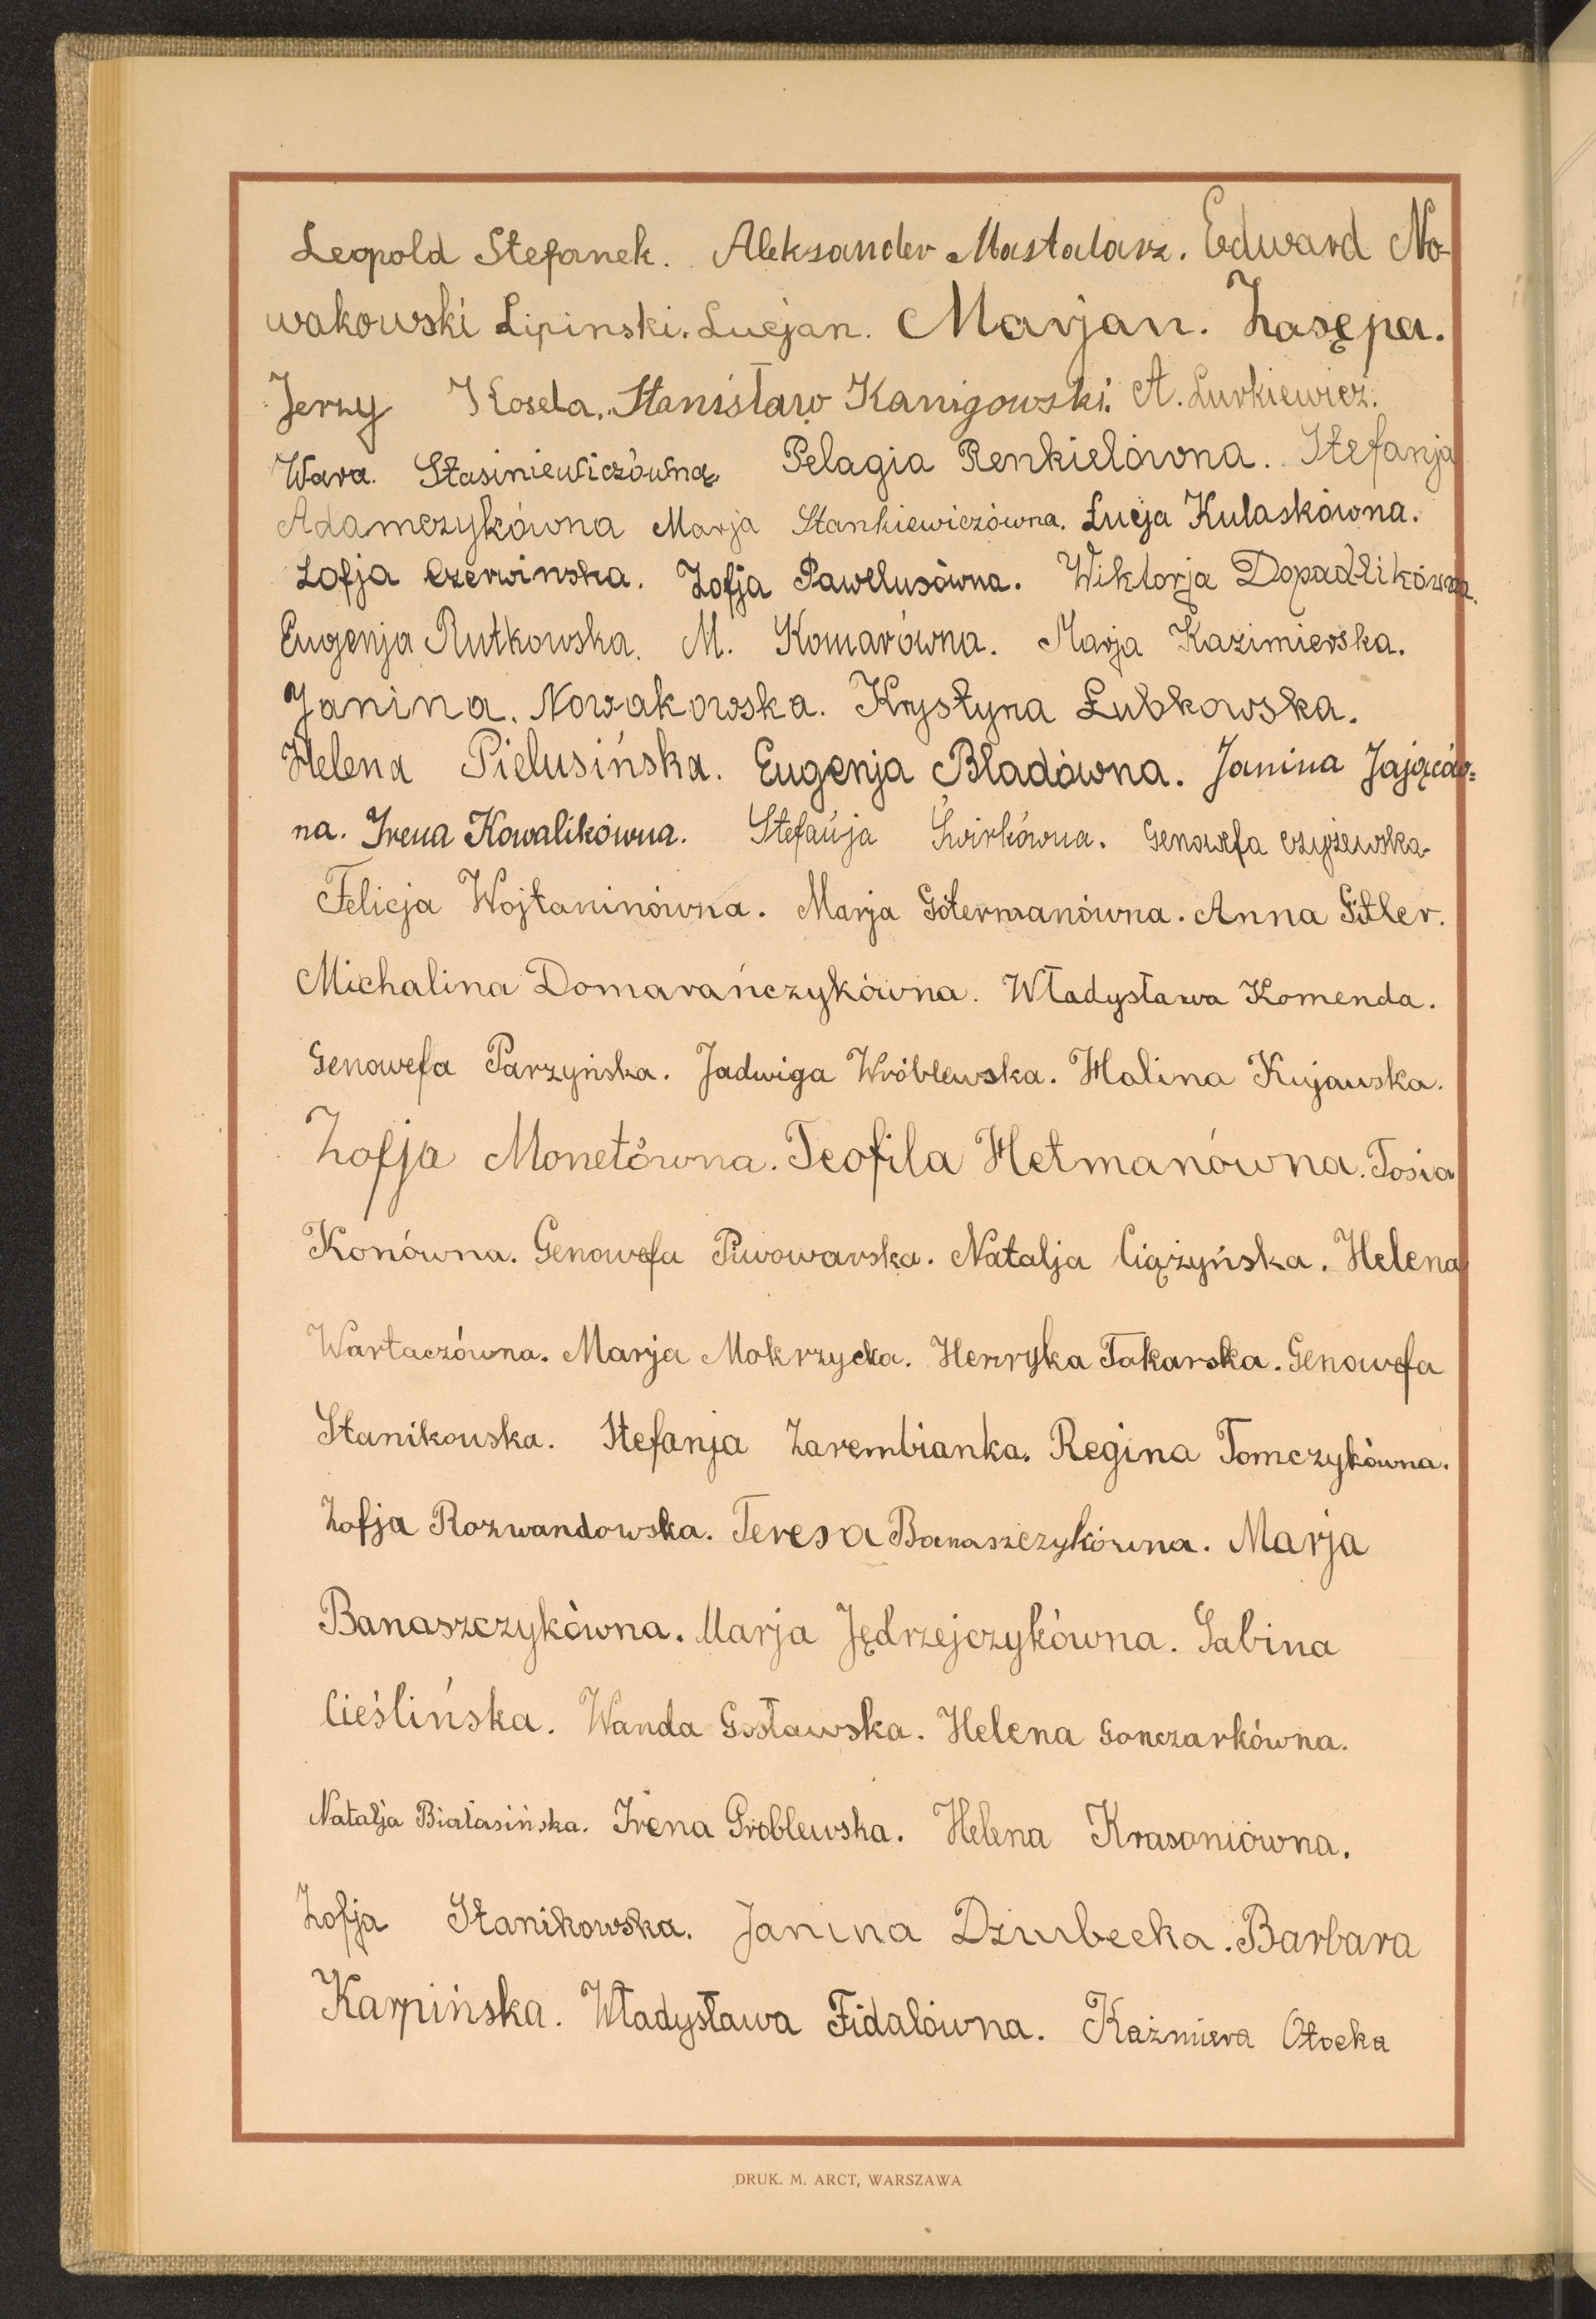 Leopold Stefanek. Aleksander Mastalarz. Edward No-
wakowski Lipinski. Lucjan. Marjan. Zasępa.
Jerzy Koseła. Stanisław Kanigowski. A. Lurkiewicz.
Wara. Stasiniewiczówna. Pelagia Renkielówna. Stefanja
Adamczykówna Marja Stankiewiczówna. Łucja Kulaskówna.
Zofja Czerwinska. Zofja Pawelusówna. Wiktorja Dopadlikówna.
Eugenja Rutkowska. M. Komarówna. Marja Kazimierska.
Janina. Nowakowska. Krystyna Łubkowska.
Helena Pielusińska. Eugenja Bladówna. Janina Jająców=
na. Irena Kowalikówna. Stefanja Świrkówna. Genowefa Czyżewska
Felicja Wojtaninówna. Marja Götermanówna. Anna Gitler.
Michalina Domarańczykówna. Władysława Komenda.
Genowefa Parzyńska. Jadwiga Wróblewska. Halina Kujawska.
Zofja Monetówna. Teofila Hetmanówna. Tosia
Konówna. Genowefa Piwowarska. Natalja Ciążyńska. Helena
Wartaczówna. Marja Mokrzycka. Henryka Tokarska. Genowefa
Stanikowska. Stefanja Zarembianka. Regina Tomczykówna.
Zofja Rozwandowska. Teresa Banaszczykówna. Marja
Banaszczykówna. Marja Jędrzejczykówna. Sabina
Cieślińska. Wanda Gosławska. Helena Gonczarkówna.
Natalja Białasińska. Irena Groblewska. Helena Krasoniówna.
Zofja Stanikowska. Janina Dziubecka. Barbara
Karpińska. Władysława Fidalówna. Kaźmiera Otocka
DRUK. M. ARCT, WARSZAWA